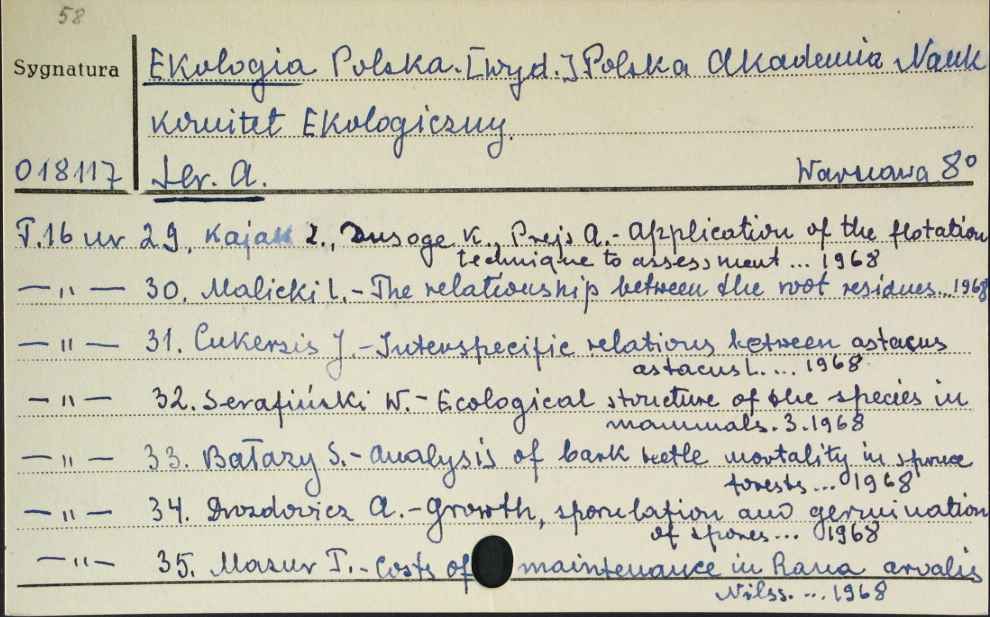 58
Sygnatura
Ekologia Polska. [wyd.] Polska Akademia Nauk
Komitet Ekologiczny.
018117 Ser. A. Warszawa 8°
T.16 nr 29. Kajak Z., Dusoge K., Prejs A. - Application of the flotation
technique to assessment ... 1968
— " — 30. Malicki L. - The relationship between the root residues... 1968
— " — 31. Cukerzis J. - Interspecific relations between astacus
astacus L. ... 1968
— " — 32. Serafiński W. - Ecological structure of the species in
mammals. 3. 1968
— " — 33. Bałazy S. - Analysis of bark beetle mortality in spruce
forests ... 1968
— " — 34. Drozdowicz A. - Growth, sporulation and germination
of spores ... 1968
— " — 35. Mazur T. - Costs of maintenance in Rana arvalis
Nilss. ... 1968